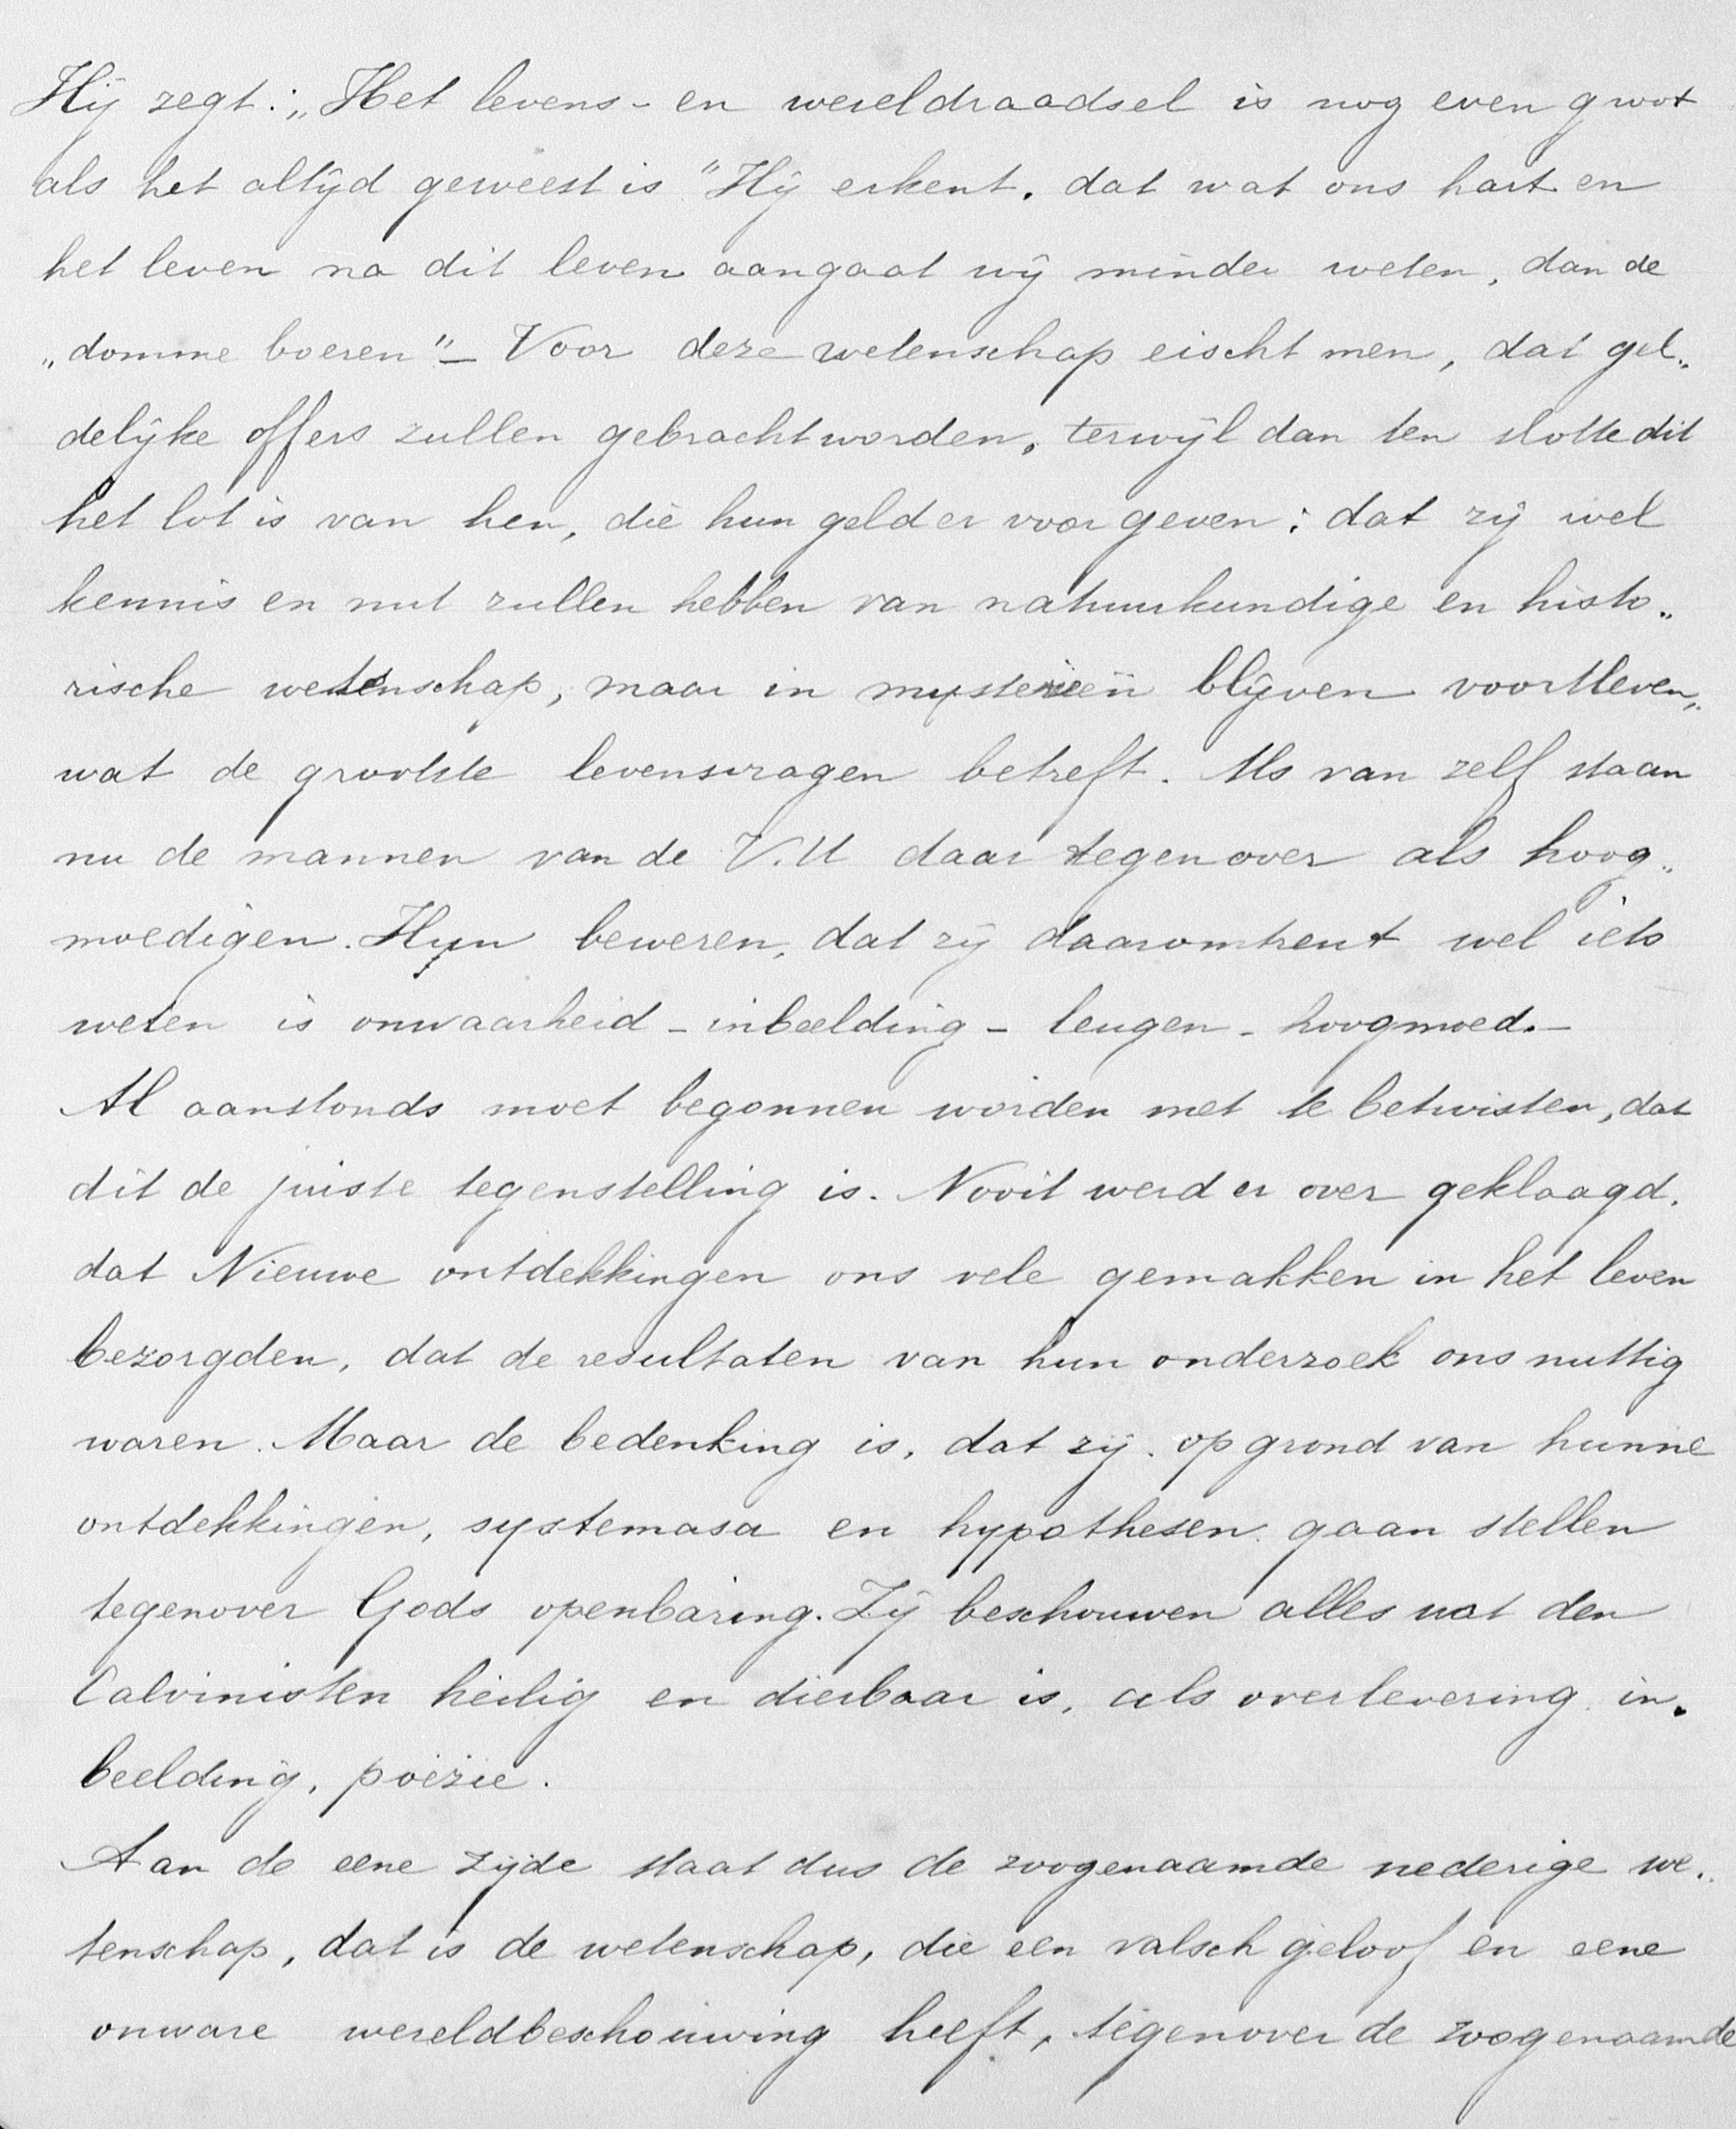 Hij zegt: „Het levens- en wereldraadsel is nog even groot
als het altijd geweest is" Hij erkent, dat wat ons hart en
het leven na dit leven aangaat wij minder weten, dan de
„domme boeren" - Voor deze wetenschap eischt men, dat gel„
delijke offers zullen gebracht worden, terwijl dan ten slotte dit
het lot is van hen, die hun geld er voor geven: dat zij wel
kennis en nut zullen hebben van natuurkundige en histo„
rische wetenschap, maar in mysterieën blijven voortleven,
wat de grootste levensvragen betreft. Als van zelf staan
nu de mannen van de V.U daar tegenover als hoog„
moedigen. Hun beweren, dat zij daaromtrent wel iets
weten is onwaarheid - inbeelding - leugen - hoogmoed. -
Al aanstonds moet begonnen worden met te betwisten, dat
dit de juiste tegenstelling is. Nooit werd er over geklaagd,
dat Nieuwe ontdekkingen ons vele gemakken in het leven
bezorgden, dat de resultaten van hun onderzoek ons nuttig
waren. Maar de bedenking is, dat zij, op grond van hunne
ontdekkingen, systemasa en hypothesen gaan stellen
tegenover Gods openbaring. Zij beschouwen alles wat den
Calvinisten heilig en dierbaar is, als overlevering, in„
beelding, poëzie.
Aan de eene zijde staat dus de zoogenaamde nederige we„
tenschap, dat is de wetenschap, die een valsch geloof en eene
onware wereldbeschouwing heeft, tegenover de zoogenaamde